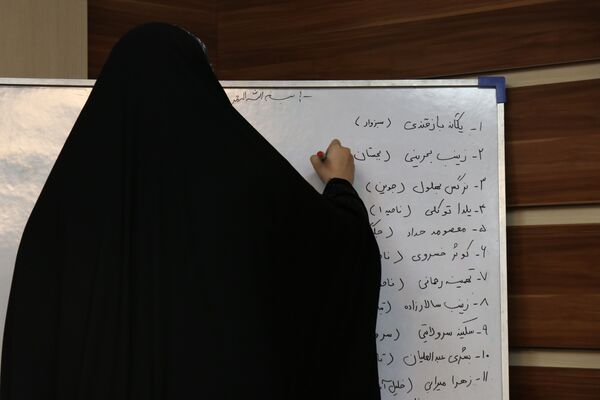 بسم الله
۱- یگانه بازقندی (سبزوار)
۲- زینب بحرینی (بجستان
۳- نرگس بهلول (جوین)
۴- یلدا توکلی (ناحیه ۱)
۵- معصومه حداد
۶- کوثر خسروی (ناحیه
۷- تهمینه رهانی (ناحیه
۸- زینب سالارزاده
۹- سکینه سرولاتی (سر
۱۰- بشری عبدالهیان
۱۱- زهرا میرابی (خلیل آ